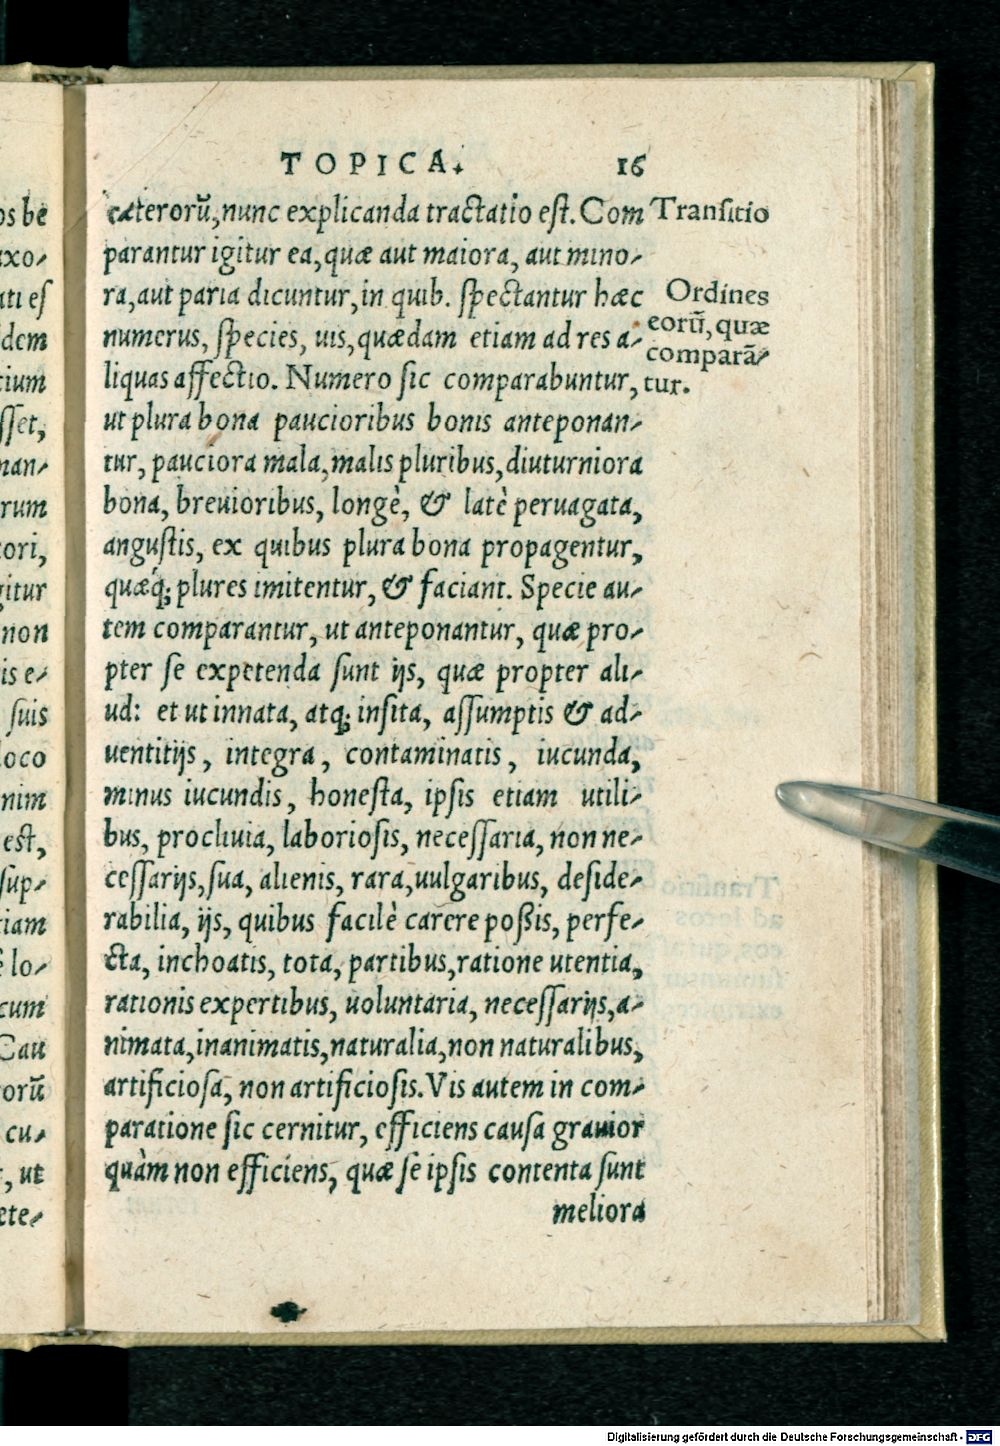 TOPICA. 16
cæterorũ, nunc explicanda tractatio est. Com
parantur igitur ea, quæ aut maiora, aut mino-
ra, aut paria dicuntur, in quib. spectantur hæc
numerus, species, uis, quædam etiam ad res a-
liquas affectio. Numero sic comparabuntur,
ut plura bona paucioribus bonis anteponan-
tur, pauciora mala, malis pluribus, diuturniora
bona, breuioribus, longè, & latè peruagata,
angustis, ex quibus plura bona propagentur,
quæq́; plures imitentur, & faciant. Specie au-
tem comparantur, ut anteponantur, quæ pro-
pter se expetenda sunt ijs, quæ propter ali-
ud: et ut innata, atq; insita, assumptis & ad-
uentitijs, integra, contaminatis, iucunda,
minus iucundis, honesta, ipsis etiam utili-
bus, procliuia, laboriosis, necessaria, non ne-
cessarijs, sua, alienis, rara, uulgaribus, deside-
rabilia, ijs, quibus facilè carere poßis, perfe-
cta, inchoatis, tota, partibus, ratione utentia,
rationis expertibus, uoluntaria, necessarijs, a-
nimata, inanimatis, naturalia, non naturalibus,
artificiosa, non artificiosis. Vis autem in com-
paratione sic cernitur, efficiens causa grauior
quàm non efficiens, quæ se ipsis contenta sunt
meliora
Transitio
Ordines
eorũ, quæ
comparã-
tur.
os be
uxo-
ati es
idem
tium
sset,
nan-
rum
tori,
gitur
non
is e-
suis
loco
nim
est,
sup-
tiam
lo-
cum
Cau
orũ
cu-
, ut
ete-
Digitalisierung gefördert durch die Deutsche Forschungsgemeinschaft - DFG